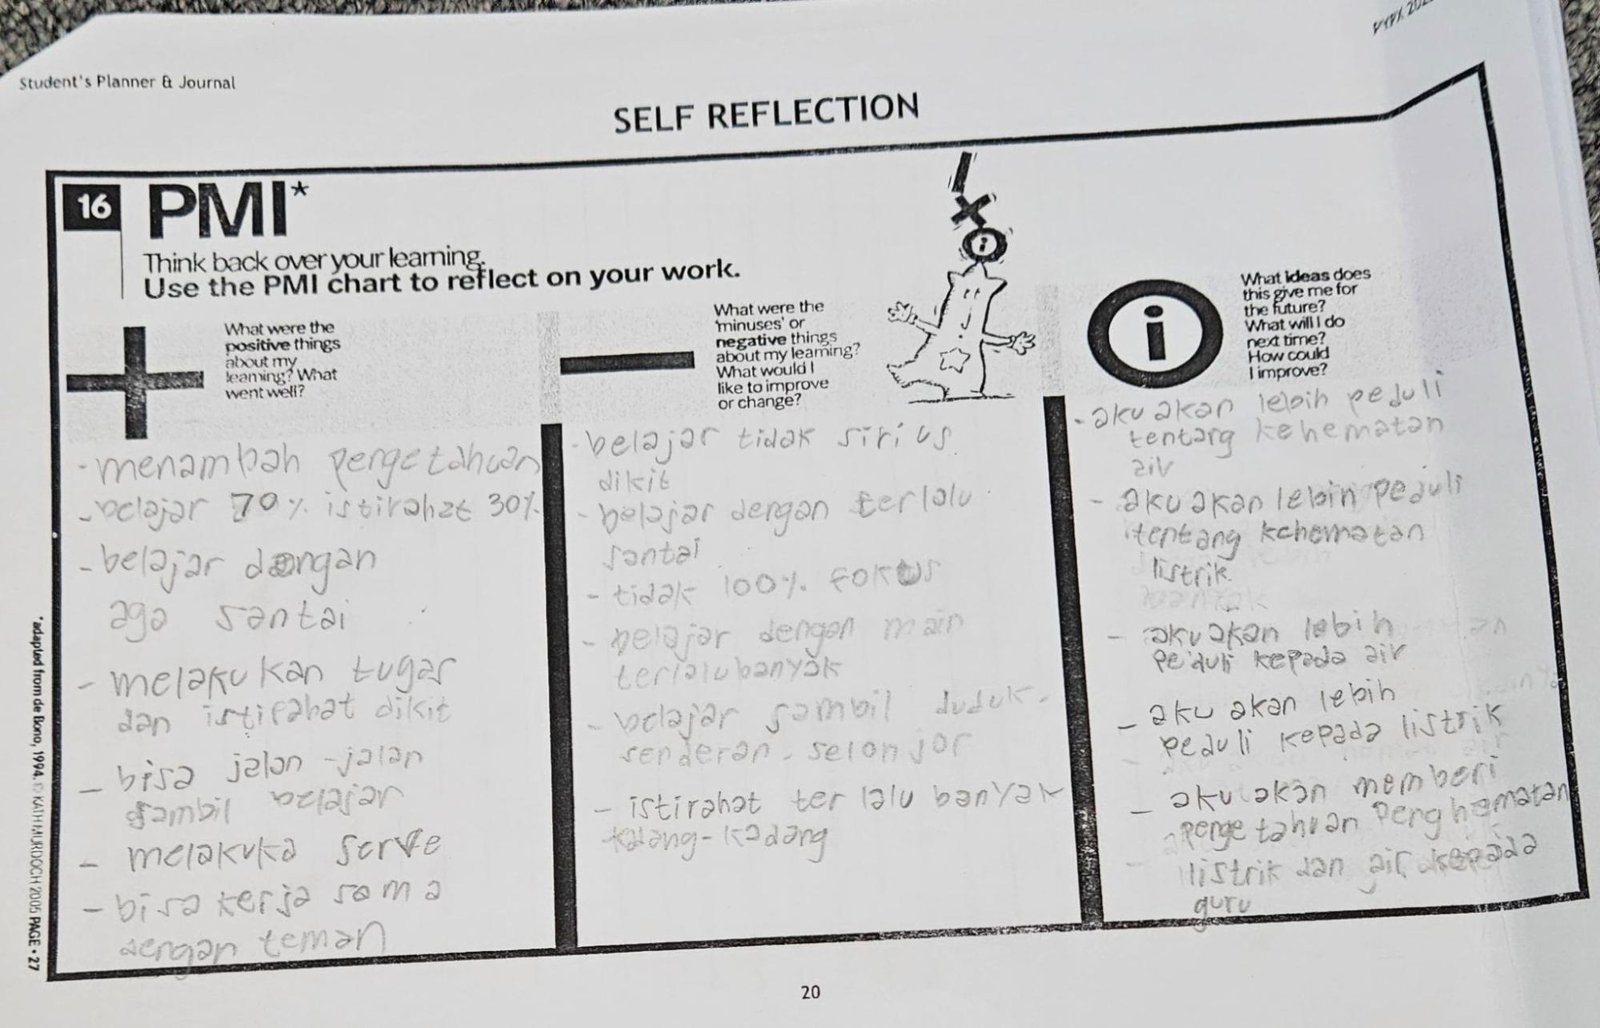 Student's Planner & Journal
SELF REFLECTION
16
PMI*
Think back over your learning.
Use the PMI chart to reflect on your work.
What were the
positive things
about my
learning? What
went well?
- menambah pergetahuan
- belajar 70% istirahat 30%
- belajar dengan
aga santai
- melakukan tugas
dan istirahat dikit
- bisa jalan-jalan
sambil belajar
- melakuka serve
- bisa kerja sama
dengan teman
What were the
'minuses' or
negative things
about my learning?
What would I
like to improve
or change?
- belajar tidak sirius
dikit
- belajar dengan terlalu
santai
- tidak 100% fokus
- belajar dengan main
terlalu banyak
- belajar sambil duduk-
senderan-selonjor
- istirahat terlalu banyak
kadang-kadang
i
What ideas does
this give me for
the future?
What will I do
next time?
How could
I improve?
- aku akan lebih peduli
tentang kehematan
air
- aku akan lebih peduli
tentang kehematan
listrik
- aku akan lebih
peduli kepada air
- aku akan lebih
peduli kepada listrik
- aku akan memberi
pengetahuan penghematan
listrik dan air kepada
guru
*adapted from de Bono, 1994. © KATH MURDOCH 2005 PAGE • 27
20